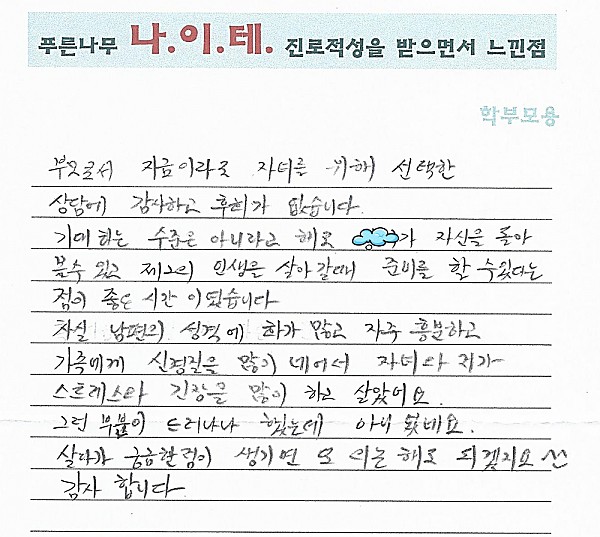 푸른나무 나.이.테. 진로적성을 받으면서 느낀점
학부모용
부모로서 지금이라도 자녀를 위해 선택한
상담에 감사하고 후회가 없습니다.
기대하는 수준은 아니라고 해도 가 자신을 돌아
볼수 있고 제2의 인생을 살아갈때 준비를 할 수있다는
점이 좋은 시간 이였습니다
차실 남편의 성격에 화가 많고 자주 흥분하고
가족에게 신경질을 많이 내어서 자녀와 저가
스트레스와 긴장을 많이 하고 살았어요.
그런 부분이 드러나나 했는데 아니 였네요.
살다가 궁금한점이 생기면 또 의논해도 되겠지요 ^^
감사 합니다